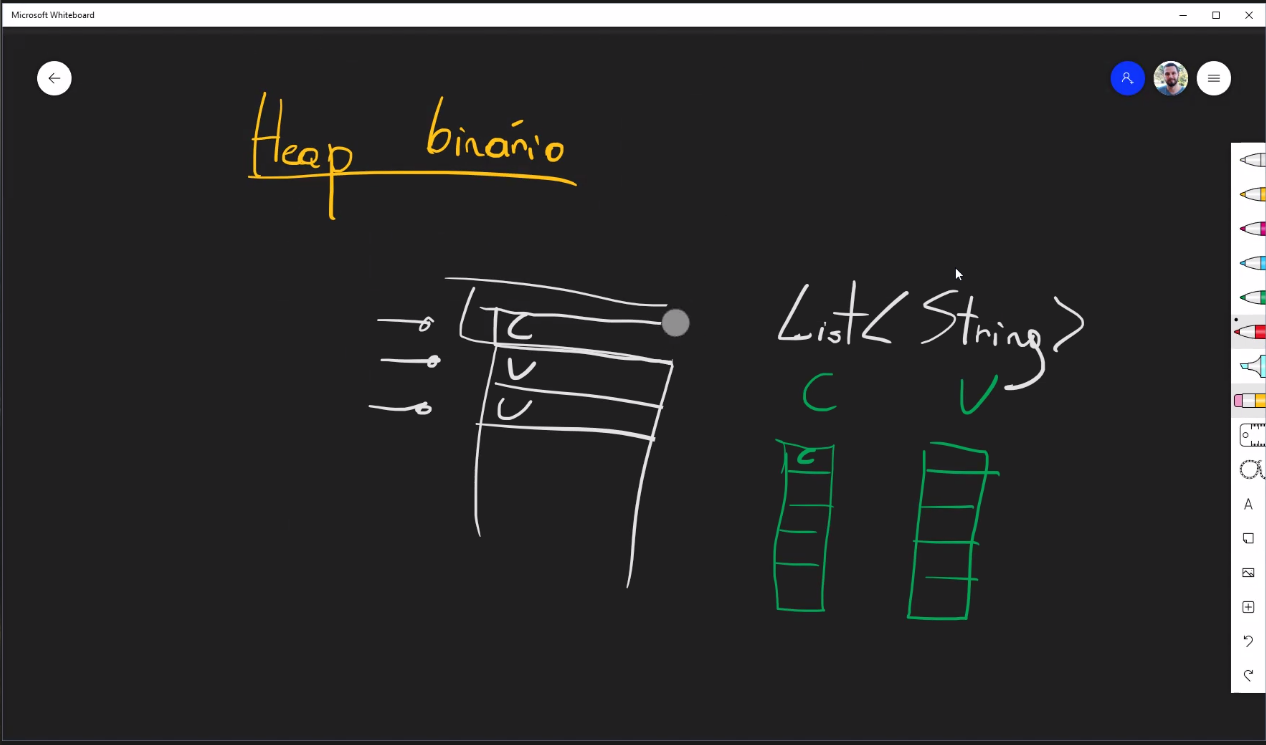 Microsoft Whiteboard
Heap binário
List<String>
C
V
U
C V
C
A